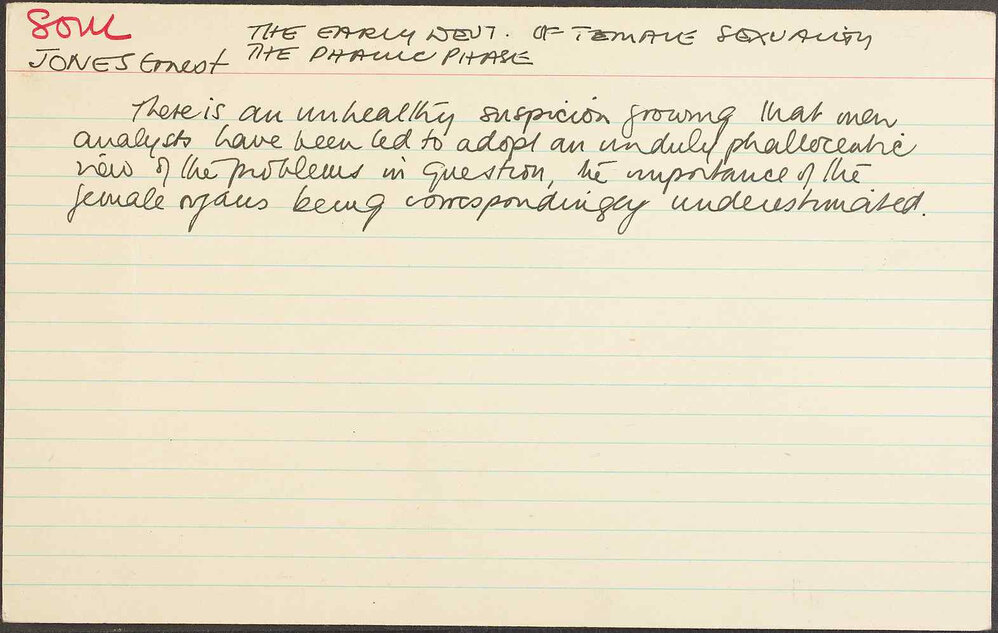 SOUL
JONES Ernest
THE EARLY DEVT. OF FEMALE SEXUALITY
THE PHALLIC PHASE
There is an unhealthy suspicion growing that men
analysts have been led to adopt an unduly phallocentric
view of the problems in question, the importance of the
female organs being correspondingly underestimated.